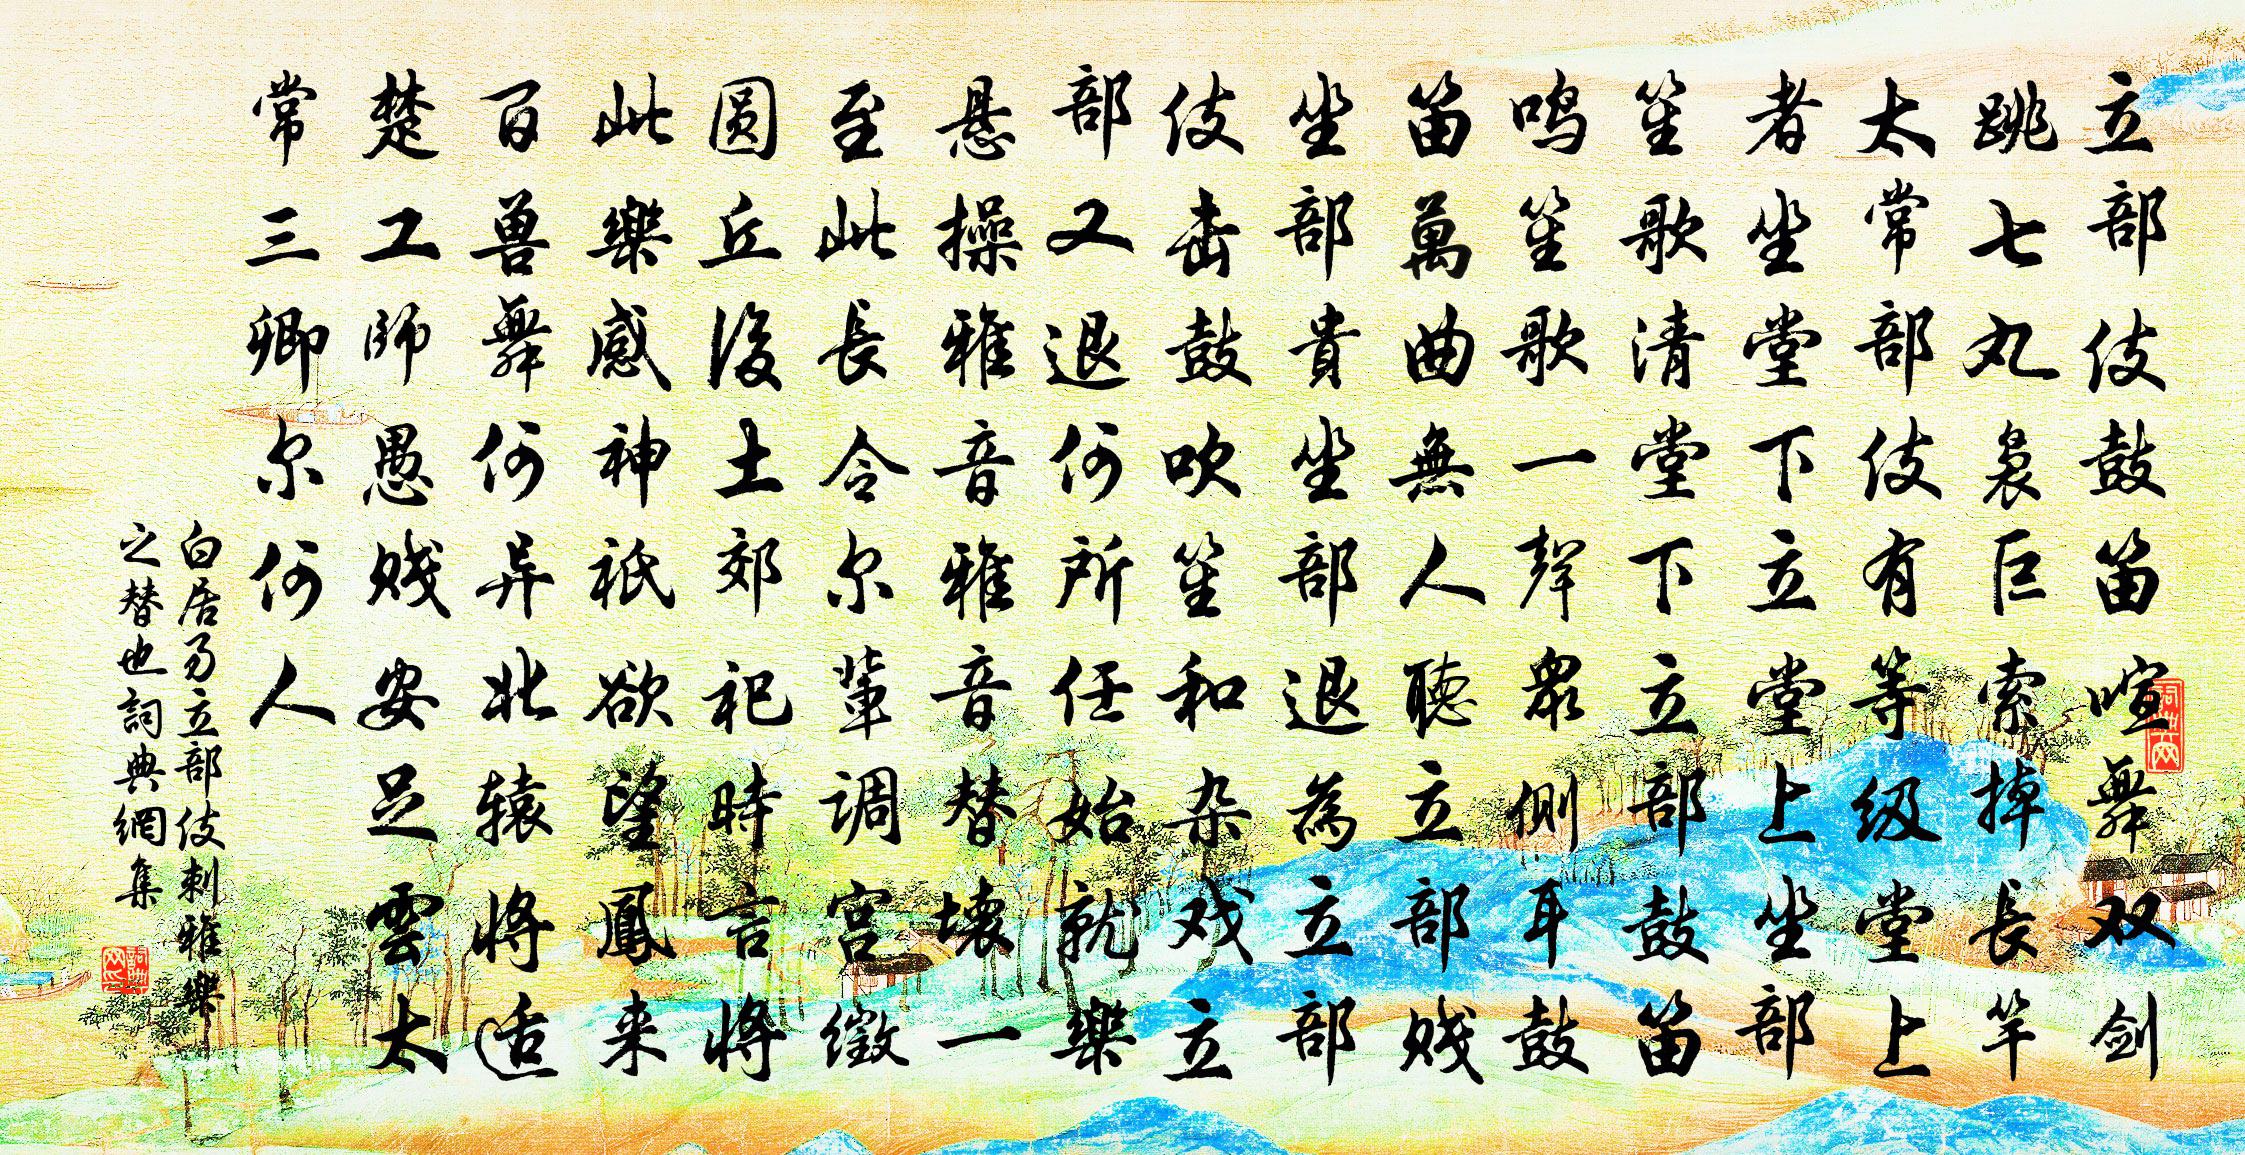 立部伎鼓笛喧舞双剑
跳七丸袅巨索掉长竿
太常部伎有等级堂上
者坐堂下立堂上坐部
笙歌清堂下立部鼓笛
鸣笙歌一聲眾側耳鼓
笛萬曲無人聽立部贱
坐部貴坐部退為立部
伎击鼓吹笙和杂戏立
部又退何所任始就樂
悬操雅音雅音替壞一
至此長令尔輩调宫徵
圆丘後土郊祀時言将
此樂感神祇欲望鳳来
百兽舞何异北辕将适
楚工师愚贱安足雲太
常三卿尔何人
白居易立部伎刺雅樂
之替也詞典網集